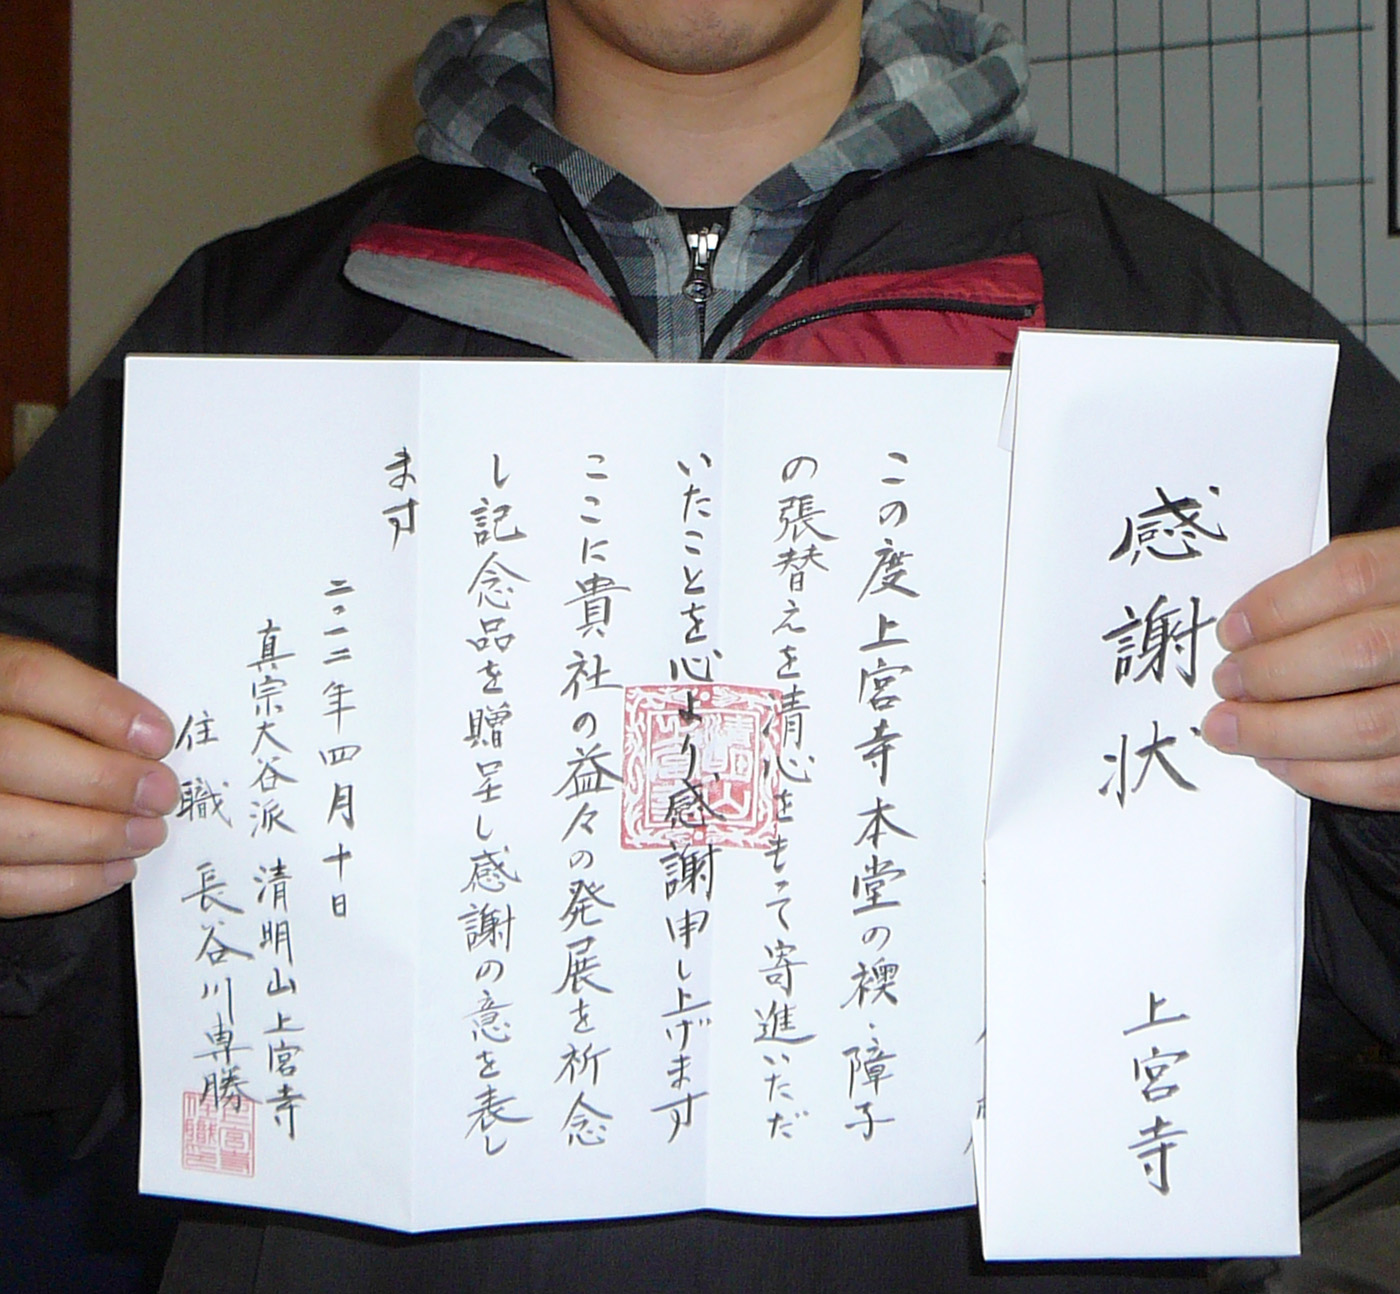 感謝状
上宮寺
この度上宮寺本堂の襖、障子
の張替えを清心をもって寄進いただ
いたことを心より感謝申し上げます
ここに貴社の益々の発展を祈念
し記念品を贈呈し感謝の意を表し
ます
二〇一二年四月十日
真宗大谷派 清明山上宮寺
住職 長谷川専勝